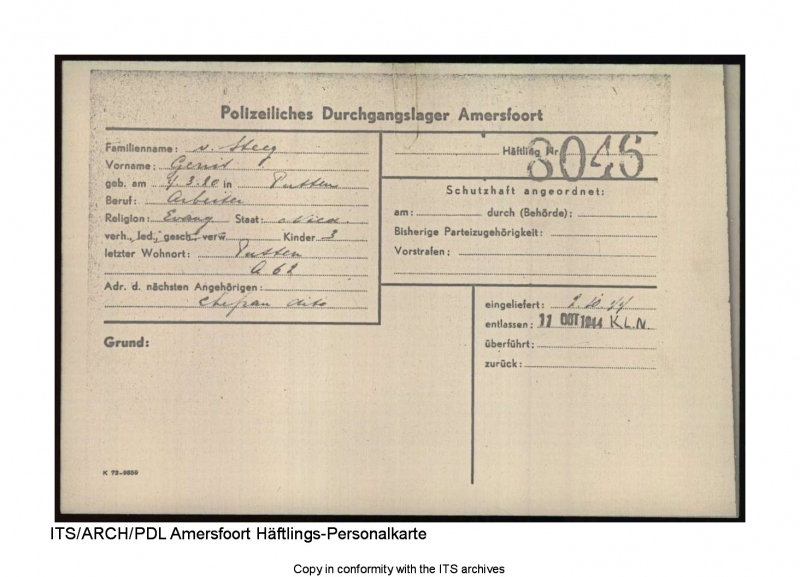 Polizeiliches Durchgangslager Amersfoort
Familienname: v. Steeg
Vorname: Gerrit
geb. am 4.3.80 in Putten
Beruf: Arbeiter
Religion: Evang Staat: Nied.
verh., led., gesch., verw. Kinder 3
letzter Wohnort: Putten
A 62
Adr. d. nächsten Angehörigen:
Ehefrau dito
Grund:
K 72-8859
Häftling Nr. 8046
Schutzhaft angeordnet:
am: durch (Behörde):
Bisherige Parteizugehörigkeit:
Vorstrafen:
eingeliefert: 2.10.44
entlassen: 11 OKT 1944 K.L.N.
überführt:
zurück:
ITS/ARCH/PDL Amersfoort Häftlings-Personalkarte
Copy in conformity with the ITS archives